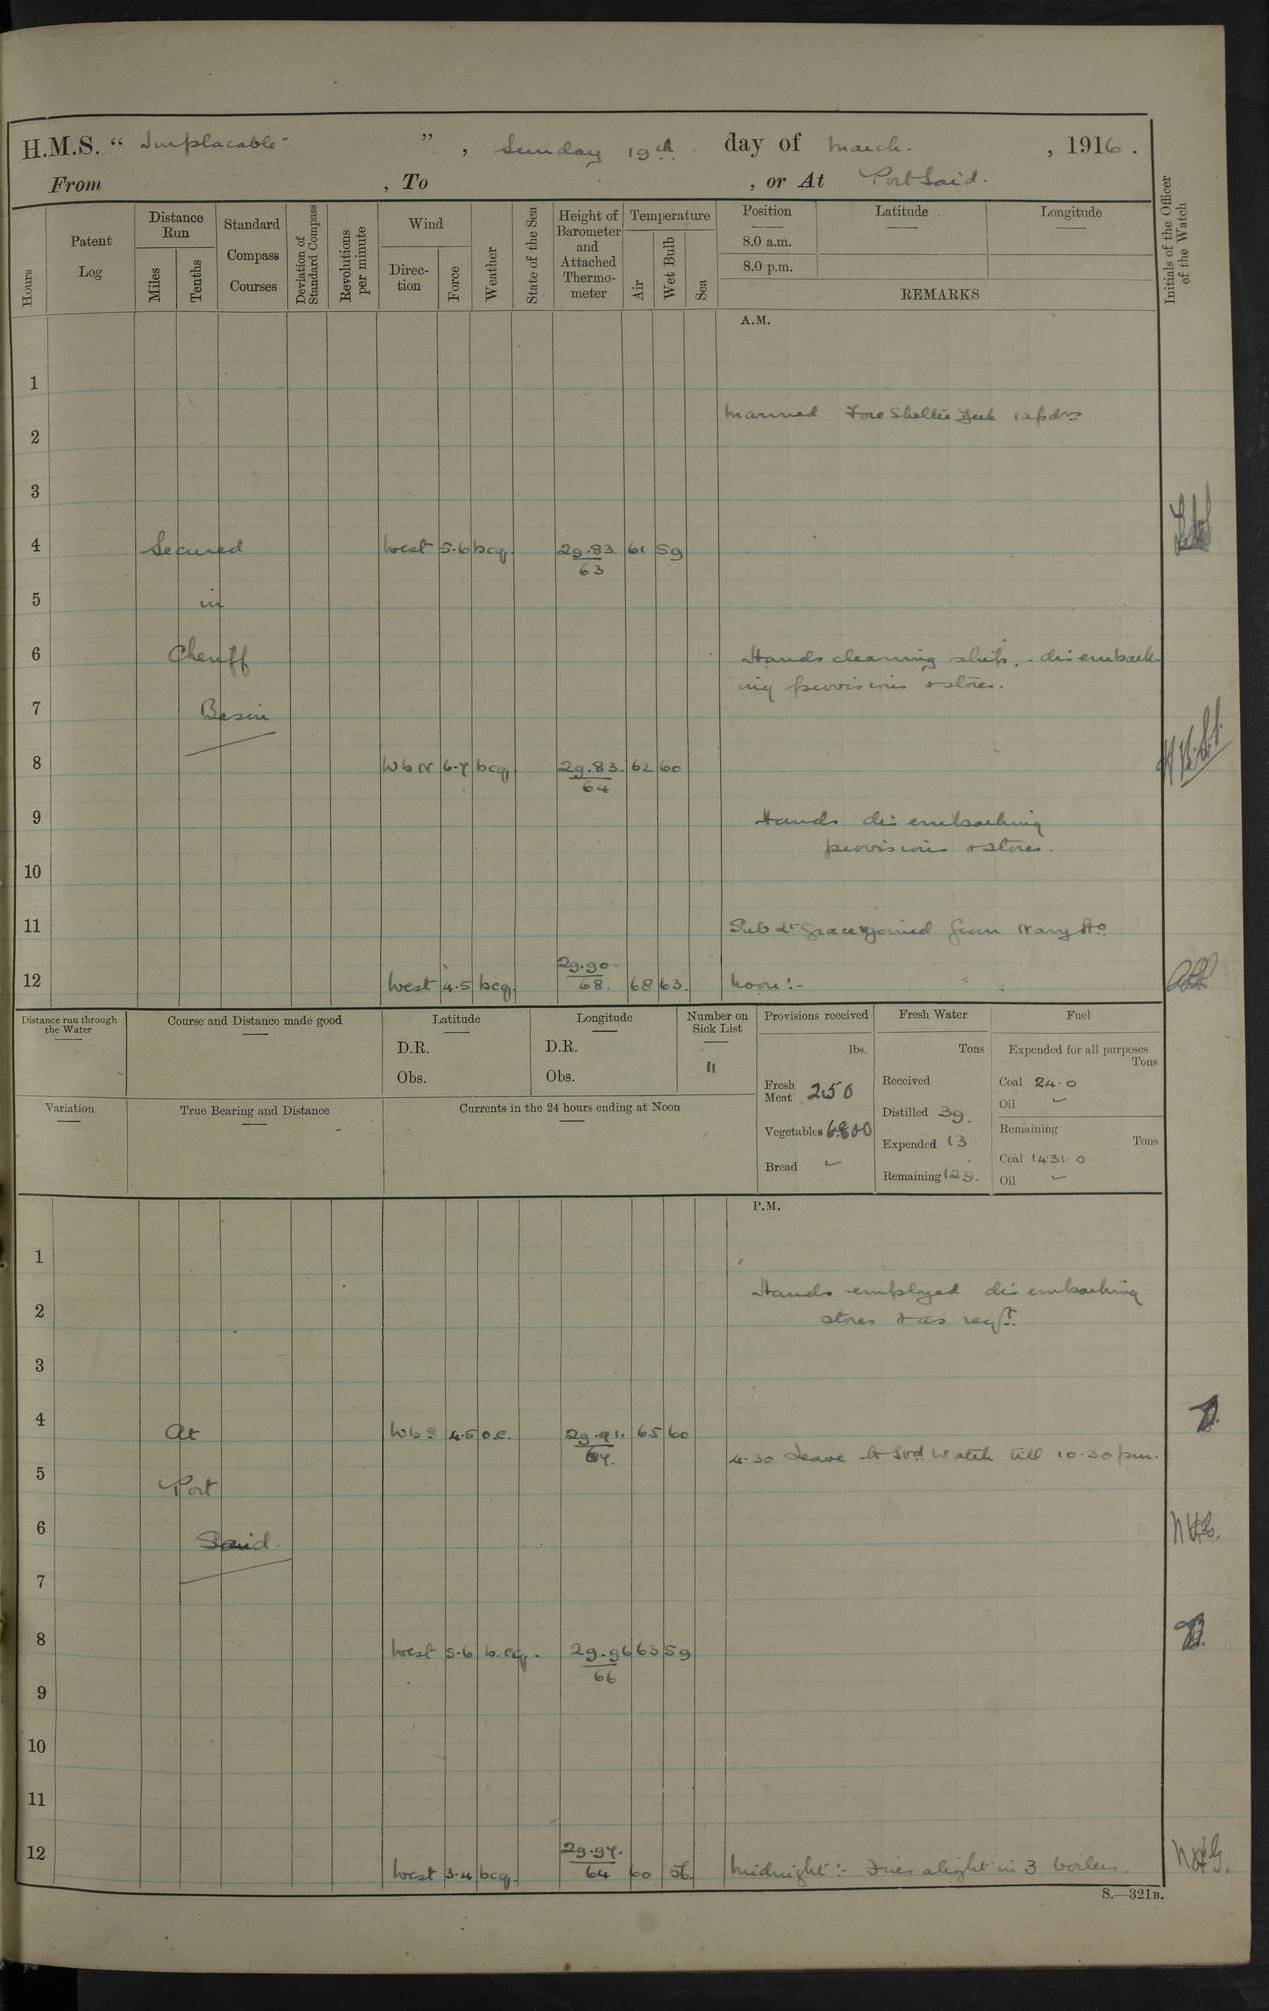 H.M.S. “ Implacable ” , Sunday 19th day of March. , 1916 .
From , To , or At Port Said.
Hours
Patent Log
Distance Run
Miles
Tenths
Standard Compass Courses
Deviation of Standard Compass
Revolutions per minute
Wind
Direc-tion
Force
Weather
State of the Sea
Height of Barometer and Attached Thermo-meter
Temperature
Air
Wet Bulb
Sea
Position
Latitude
Longitude
8.0 a.m.
8.0 p.m.
REMARKS
Initials of the Officer of the Watch
A.M.
1
Manned Fore Shelter Deck 12 pdrs
2
3
4 Secured West 5.6 bcq. 29.83. 61 59
63
5 in
6 Cheriff Hands cleaning ship, disembark-
ing provisions & stores.
7 Basin
8 W b N 6.7 bcq 29.83. 62 60
64
9 Hands disembarking
provisions & stores.
10
11 Sub Lt Grace joined from
29.90
12 West 4.5 bcq. 68. 68 63. Noon:-
Distance run through the Water
Course and Distance made good
Latitude
D.R.
Obs.
Longitude
D.R.
Obs.
Number on Sick List
11
Provisions received
lbs.
Fresh Meat 250
Vegetables 6800
Bread
Fresh Water
Tons
Received
Distilled 39.
Expended 13
Remaining 129.
Fuel
Expended for all purposes
Tons
Coal 24.0
Oil
Remaining
Tons
Coal 1431.0
Oil
Variation
True Bearing and Distance
Currents in the 24 hours ending at Noon
P.M.
1
Hands employed disembarking
2 stores & as reqt.
3
4 At W b S 4.5 o.c. 29.91. 65 60
67.
4.30 Leave to Watch till 10.30 pm.
5 Port
6 Said
7
8 West 5.6 b.cq. 29.96 63 59
66
9
10
11
29.97.
12 West 3.4 bcq. 64 60 56. Midnight:- Fires alight in 3 boilers.
S.—321B.